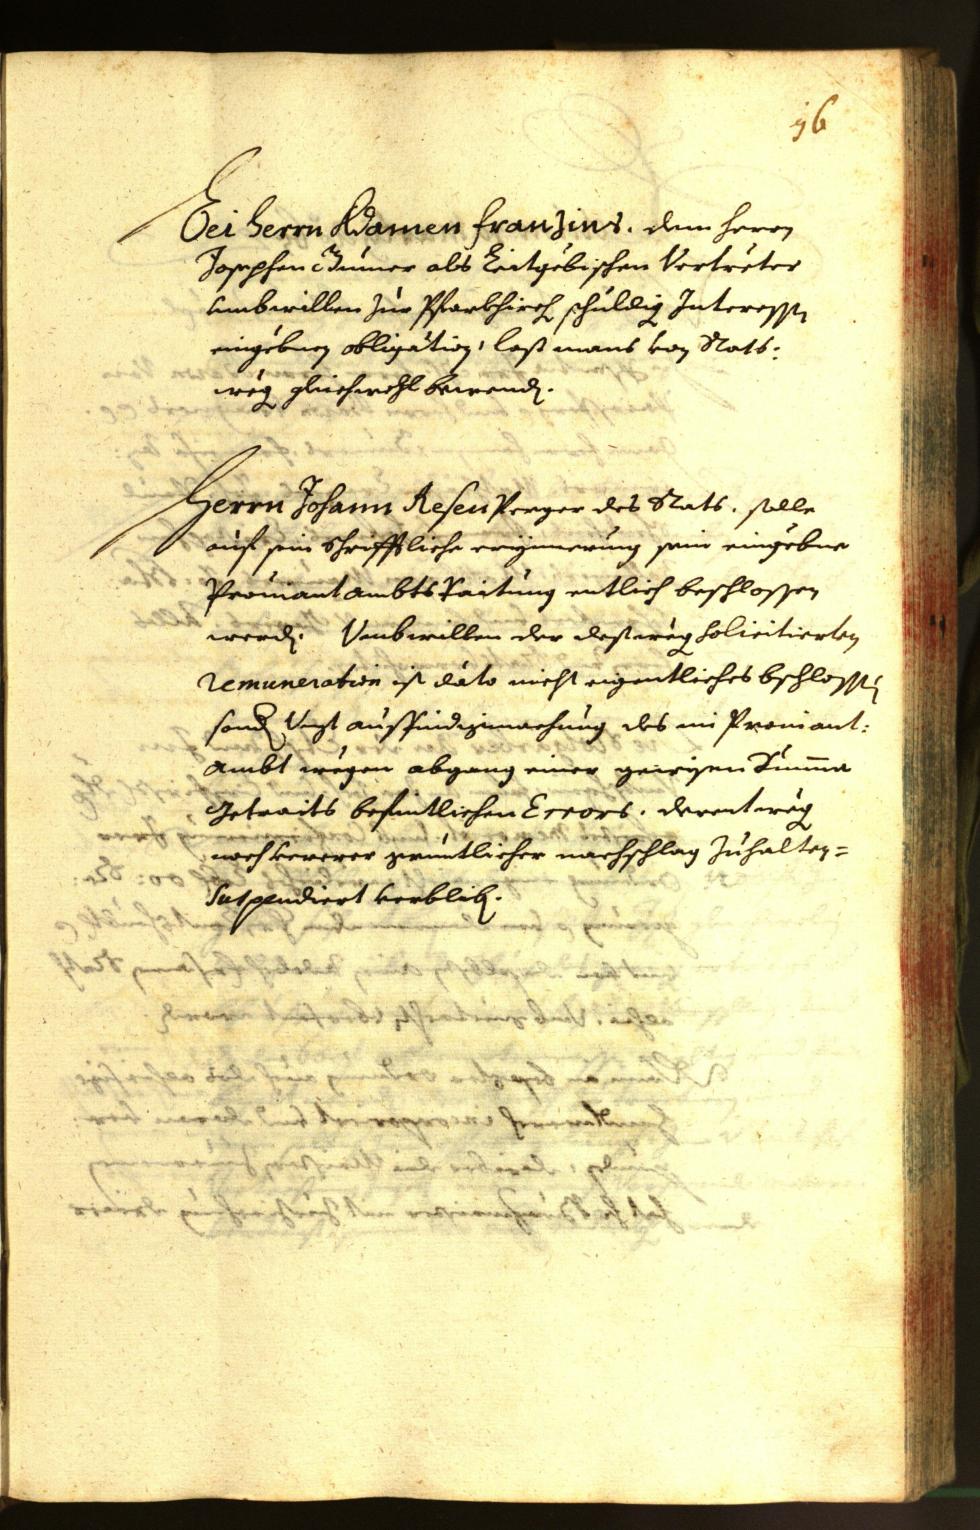 96
Bei Herrn Adamen Franzius. dem Herrn
Josephen Ingramer als Leitgebischen Vertreter
umbwillen zur Pfarkhirch schuldig Interesse
eingebnen obligation, last mans von Rats:
weg gleichwohl bewenden.
Herrn Johann Resenperger des Rats. solle
auf sein schrifftliche eriņnerung sein eingebne
Proviant Ambts Raitung entlich beschlossen
werden. Umbwillen der destweg solicitierten
remuneration ist dato nicht eigentliches bschlossen
sonder biß auffindigmachung des im Proviant:
Ambt wegen abgang einer gewissen Summa
Getraits befintlichen Errors. derentweg
noch verrer grüntlicher nachschlag zuhalten=
Suspendiert verbliben.